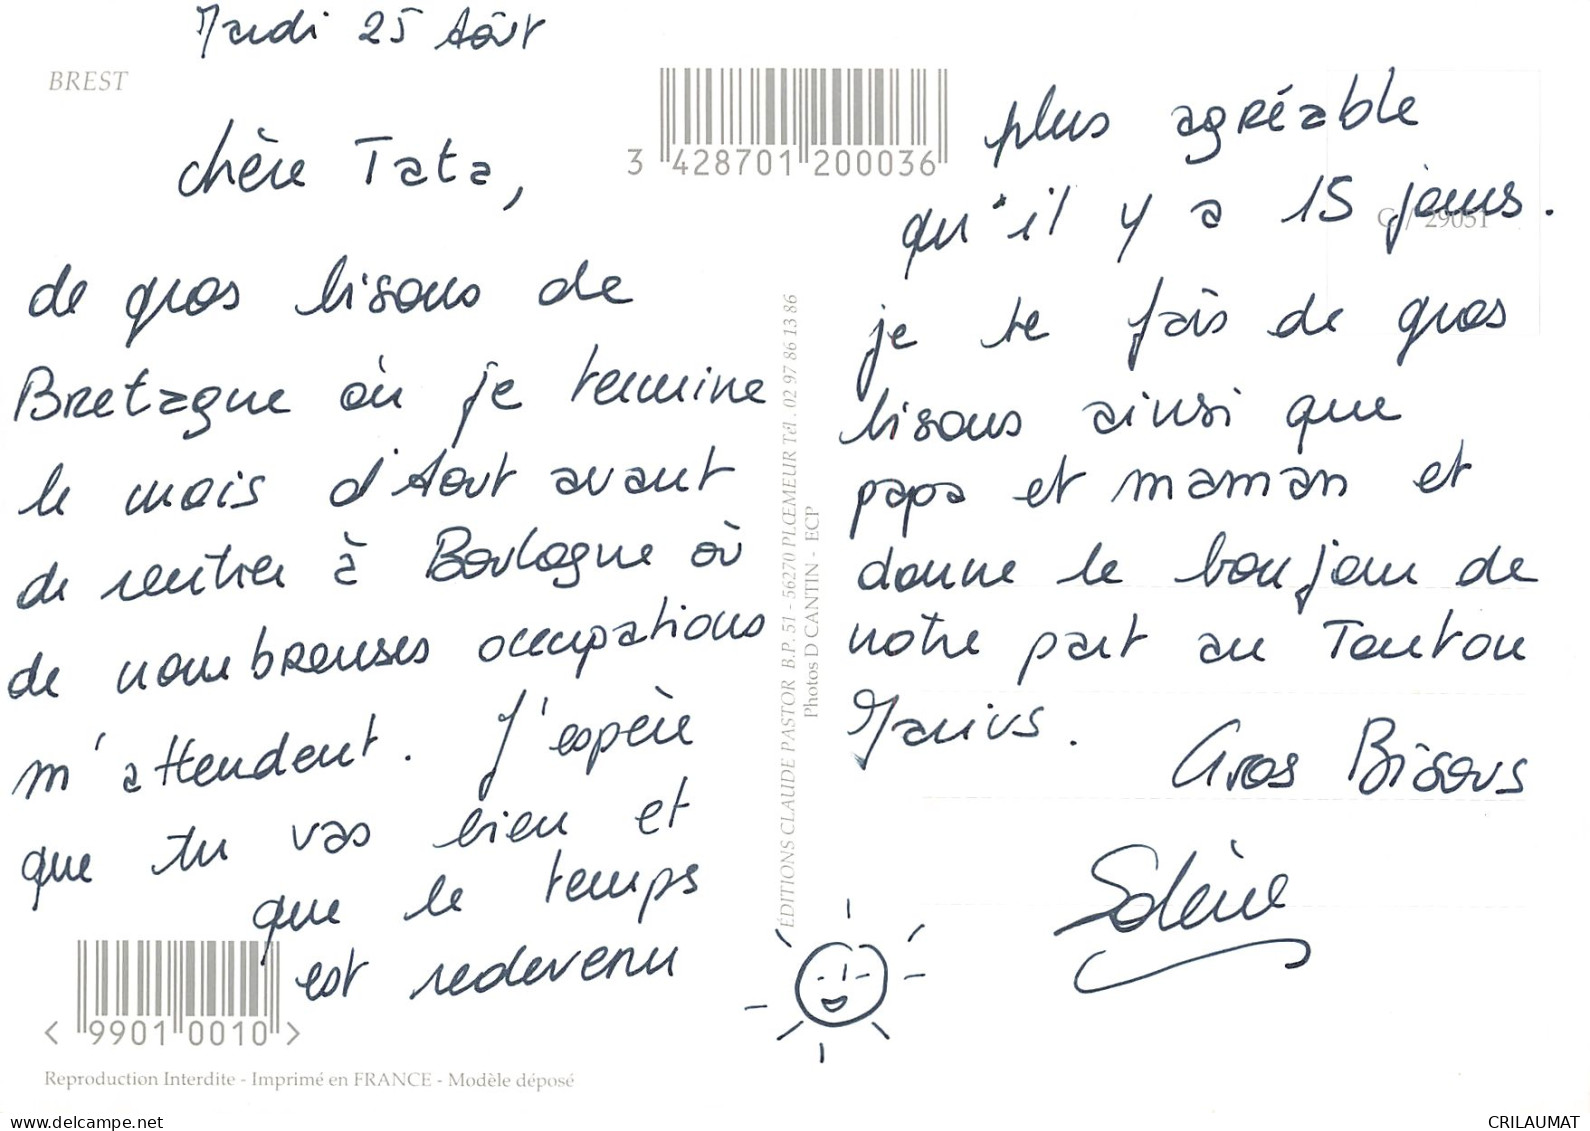 Mardi 25 Aôut
BREST
3 428701 200036
chère Tata,
de gros bisous de
Bretagne où je termine
le mois d'Aout avant
de rentrer à Boulogne où
de nombreuses occupations
m'attendent. J'espère
que tu vas bien et
que le temps
est redevenu
<99010010>
Reproduction Interdite - Imprimé en FRANCE - Modèle déposé
ÉDITIONS CLAUDE PASTOR B.P. 51 - 56270 PLŒMEUR Tél. 02 97 86 13 86
Photos D CANTIN - ECP
plus agréable
qu'il y a 15 jours.
29051
je te fais de gros
bisous ainsi que
papa et maman et
donne le bonjour de
notre part au Tonton
Marius.
Gros Bisous
Solène
www.delcampe.net
CRILAUMAT